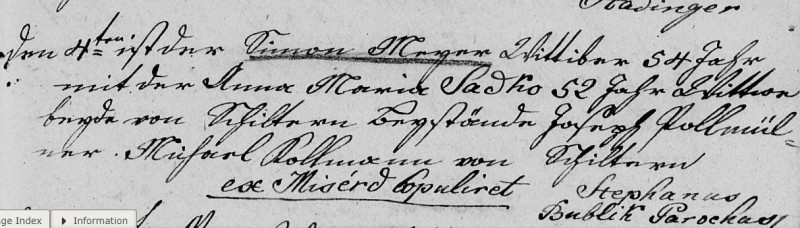 Stadinger
den 4ten ist der Simon Meyer Wittiber 54 Jahr
mit der Anna Maria Sadko 52 Jahr Wittwe
beyde von Schiltern Beystände Joseph Pollmül=
ner. Michael Kollmann von Schiltern
ex Misérd Copuliret Stephanus
Bublik Parochus
ge Index Information